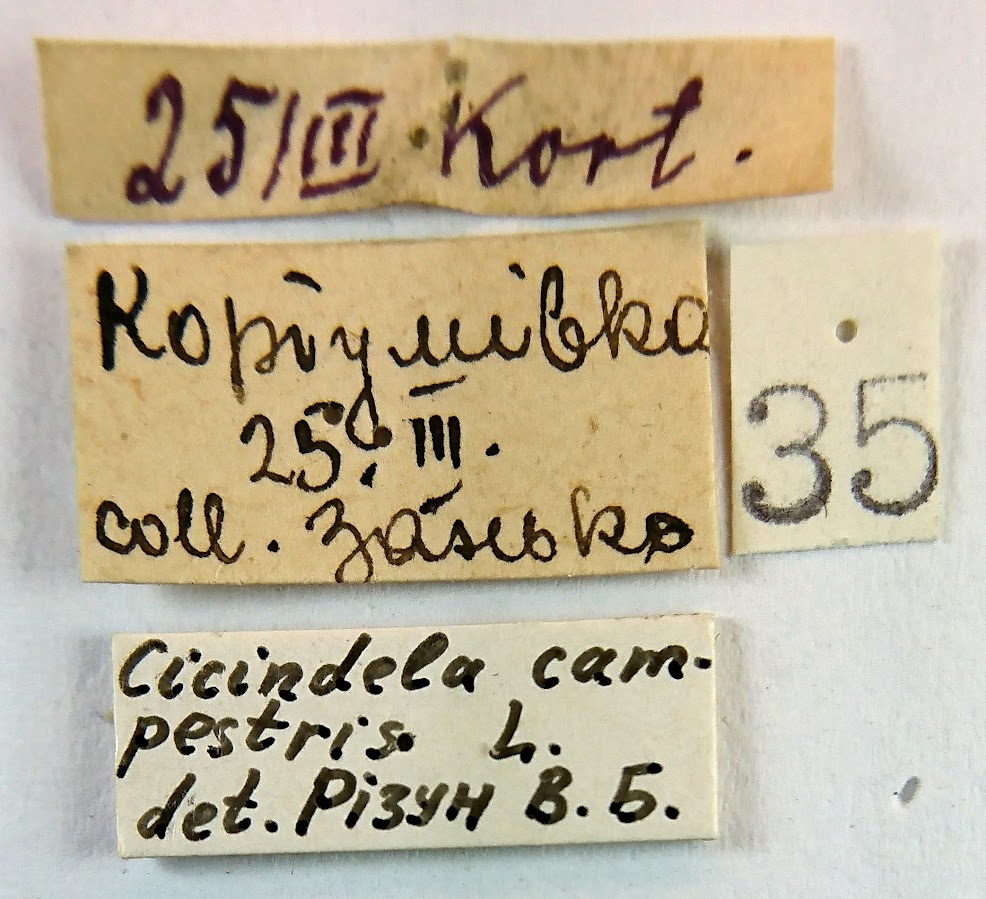 25/III Kort.
Кортумівка
25. III.
coll.
35
Cicindela cam-
pestris L.
det. Різун В. Б.